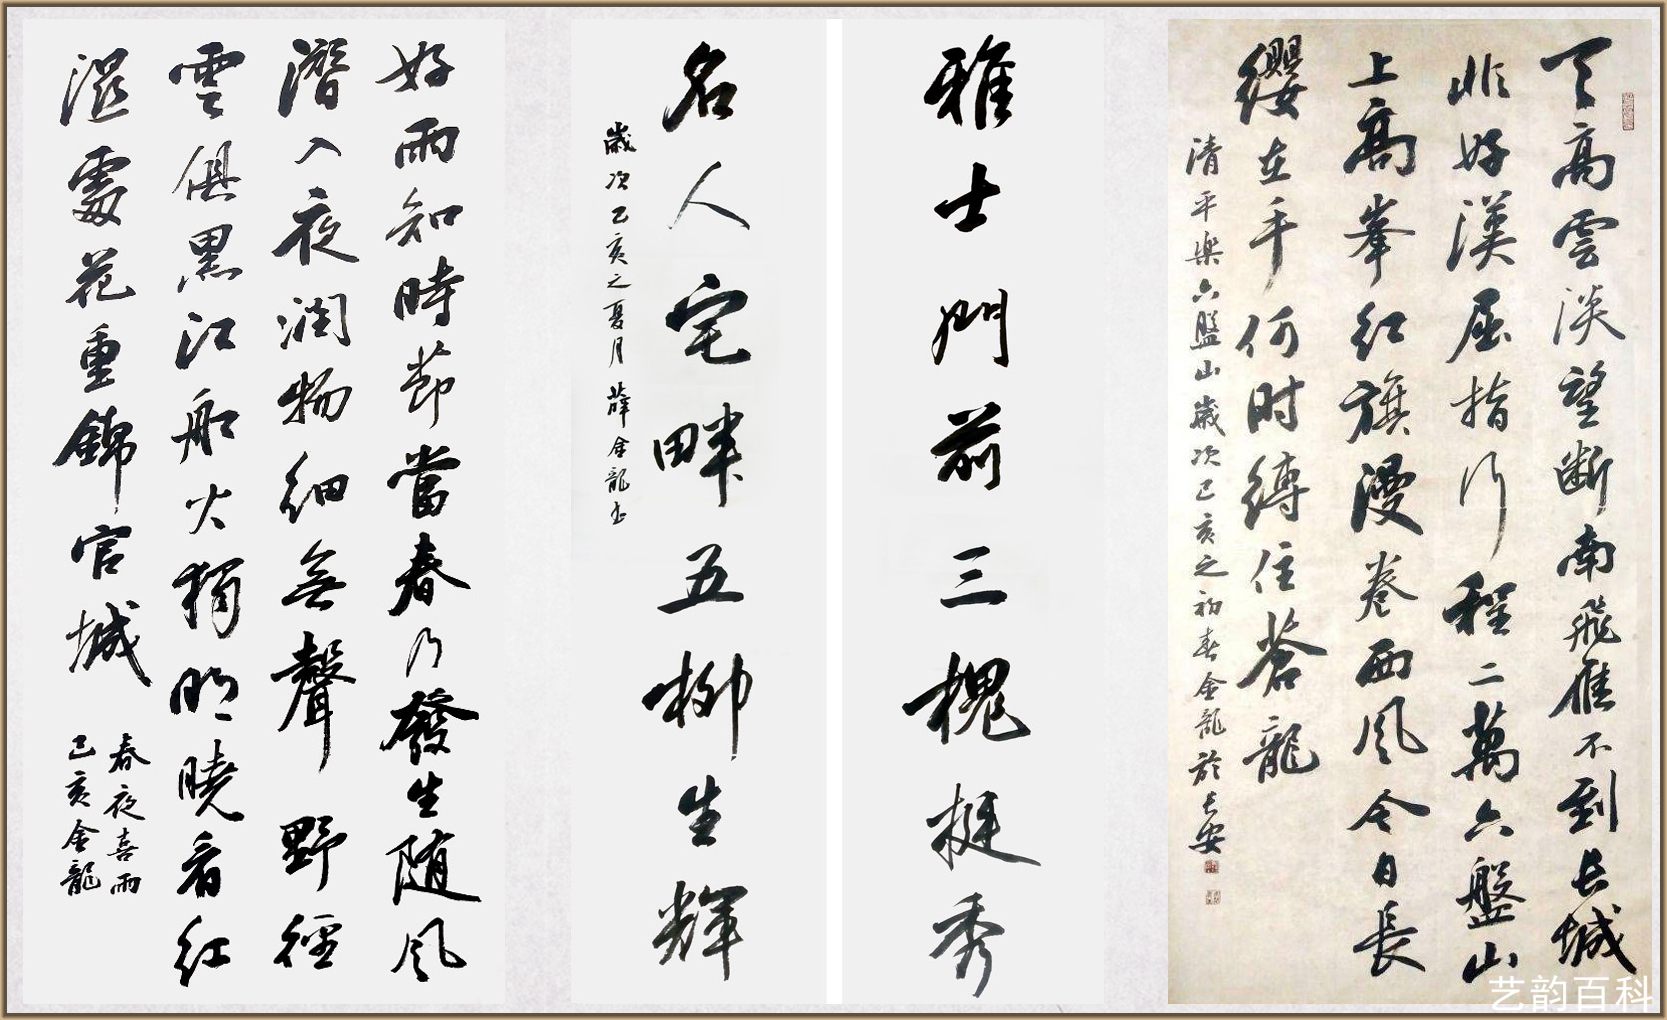 天高雲淡望断南飛雁不到長城
非好漢屈指行程二萬六盤山
上高峯紅旗漫卷西風今日長
纓在手何时縛住蒼龍
清平樂六盤山歲次己亥之初春金龍於長安
雅士門前三槐挺秀
名人宅畔五柳生輝
歲次己亥之夏月薛金龍书
好雨知時節當春乃發生随風
潛入夜润物細無聲野徑
雲俱黑江船火獨明曉看紅
濕處花重錦官城
春夜喜雨
己亥金龍
艺韵百科